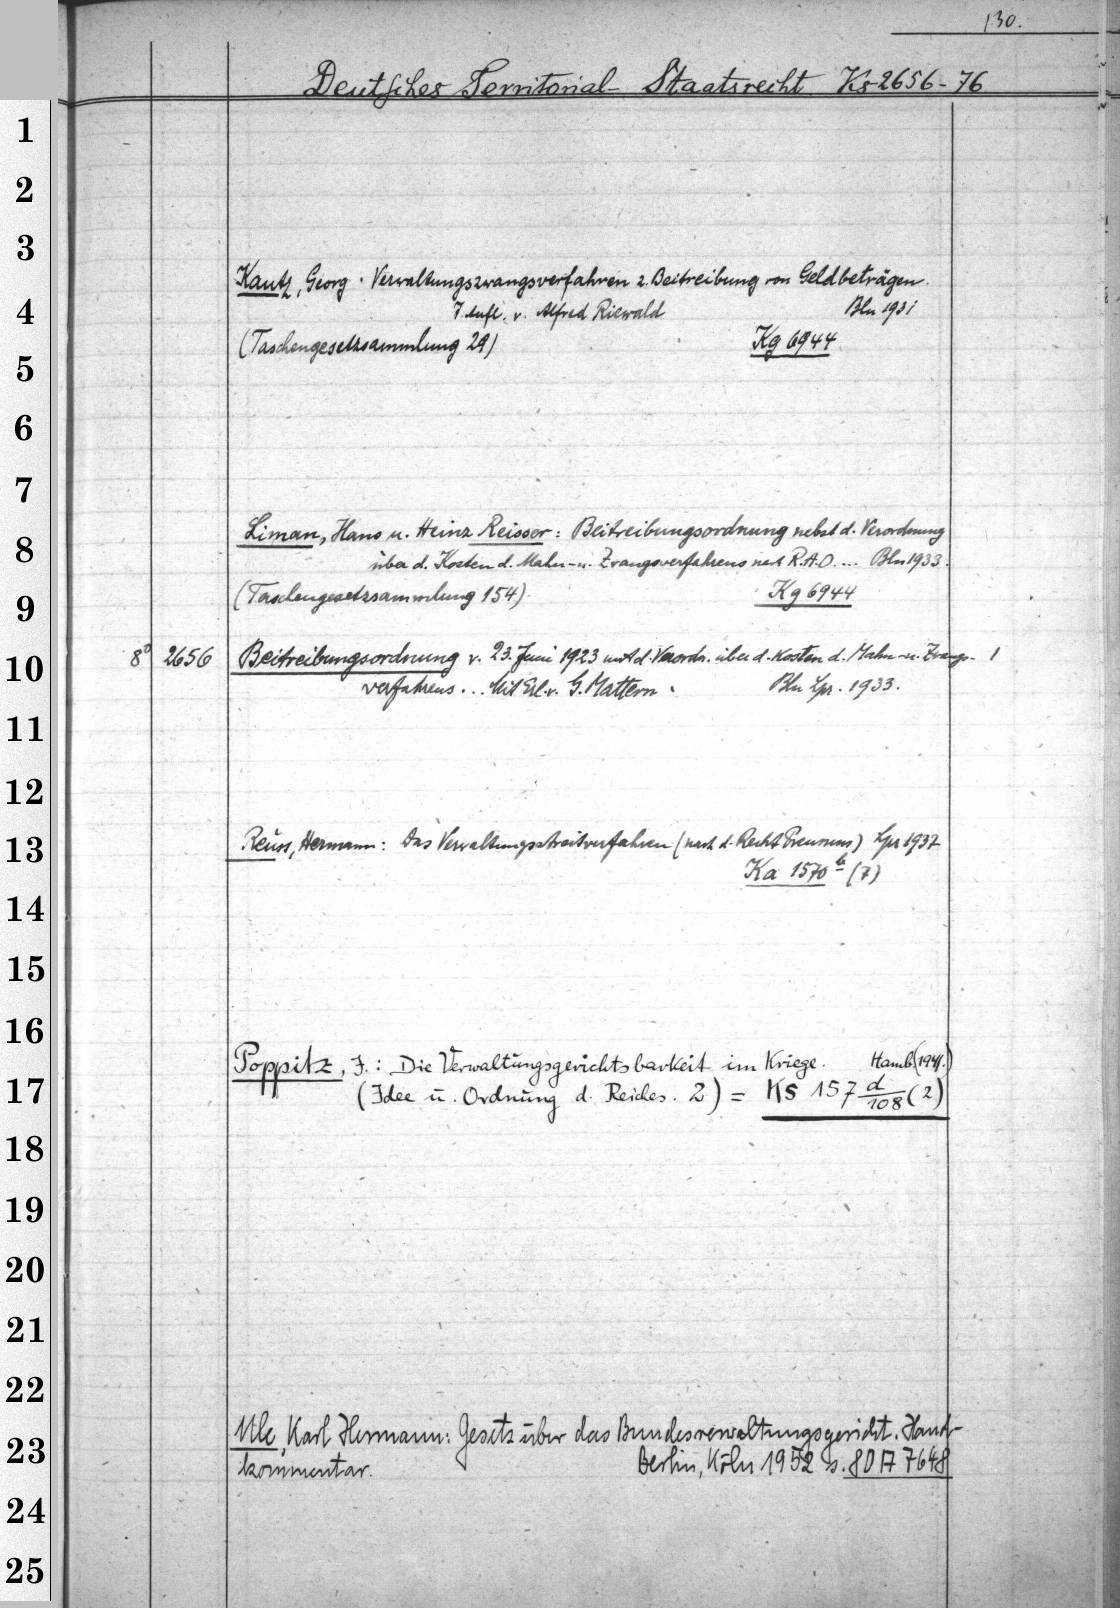 130.
Deutsches Territorial-Staatsrecht Ks 2656-76
1
2
3
Kautz, Georg. Verwaltungszwangsverfahren z. Beitreibung von Geldbeträgen.
4
7. Aufl. v. Alfred Riewald Bln 1931
(Taschengesetzsammlung 29) Kg 6944
5
6
7
Liman, Hans u. Heinz Reisser: Beitreibungsordnung nebst d. Verordnung
8
über d. Kosten d. Mahn- u. Zwangsverfahrens nach R.A.O. ... Bln 1933.
9
(Taschengesetzsammlung 154) Kg 6944
10
8° 2656 Beitreibungsordnung v. 23. Juni 1923 mit d. Verordn. über d. Kosten d. Mahn- u. Zwangs- 1
verfahrens... Mit Erl. v. G. Mattern. Bln Lpz. 1933.
11
12
13
Reuss, Hermann: Das Verwaltungsstreitverfahren (nach d. Recht Preussens) Lpz 1937
Ka 1570 b (7)
14
15
16
Poppitz, J.: Die Verwaltungsgerichtsbarkeit im Kriege. Hamb. (1941.)
17
(Idee u. Ordnung d. Reiches. 2) = Ks 157 d/108 (2)
18
19
20
21
22
Ule, Karl Hermann: Gesetz über das Bundesverwaltungsgericht. Hand-
23
kommentar. Berlin, Köln 1952 s. 80 A 7648
24
25